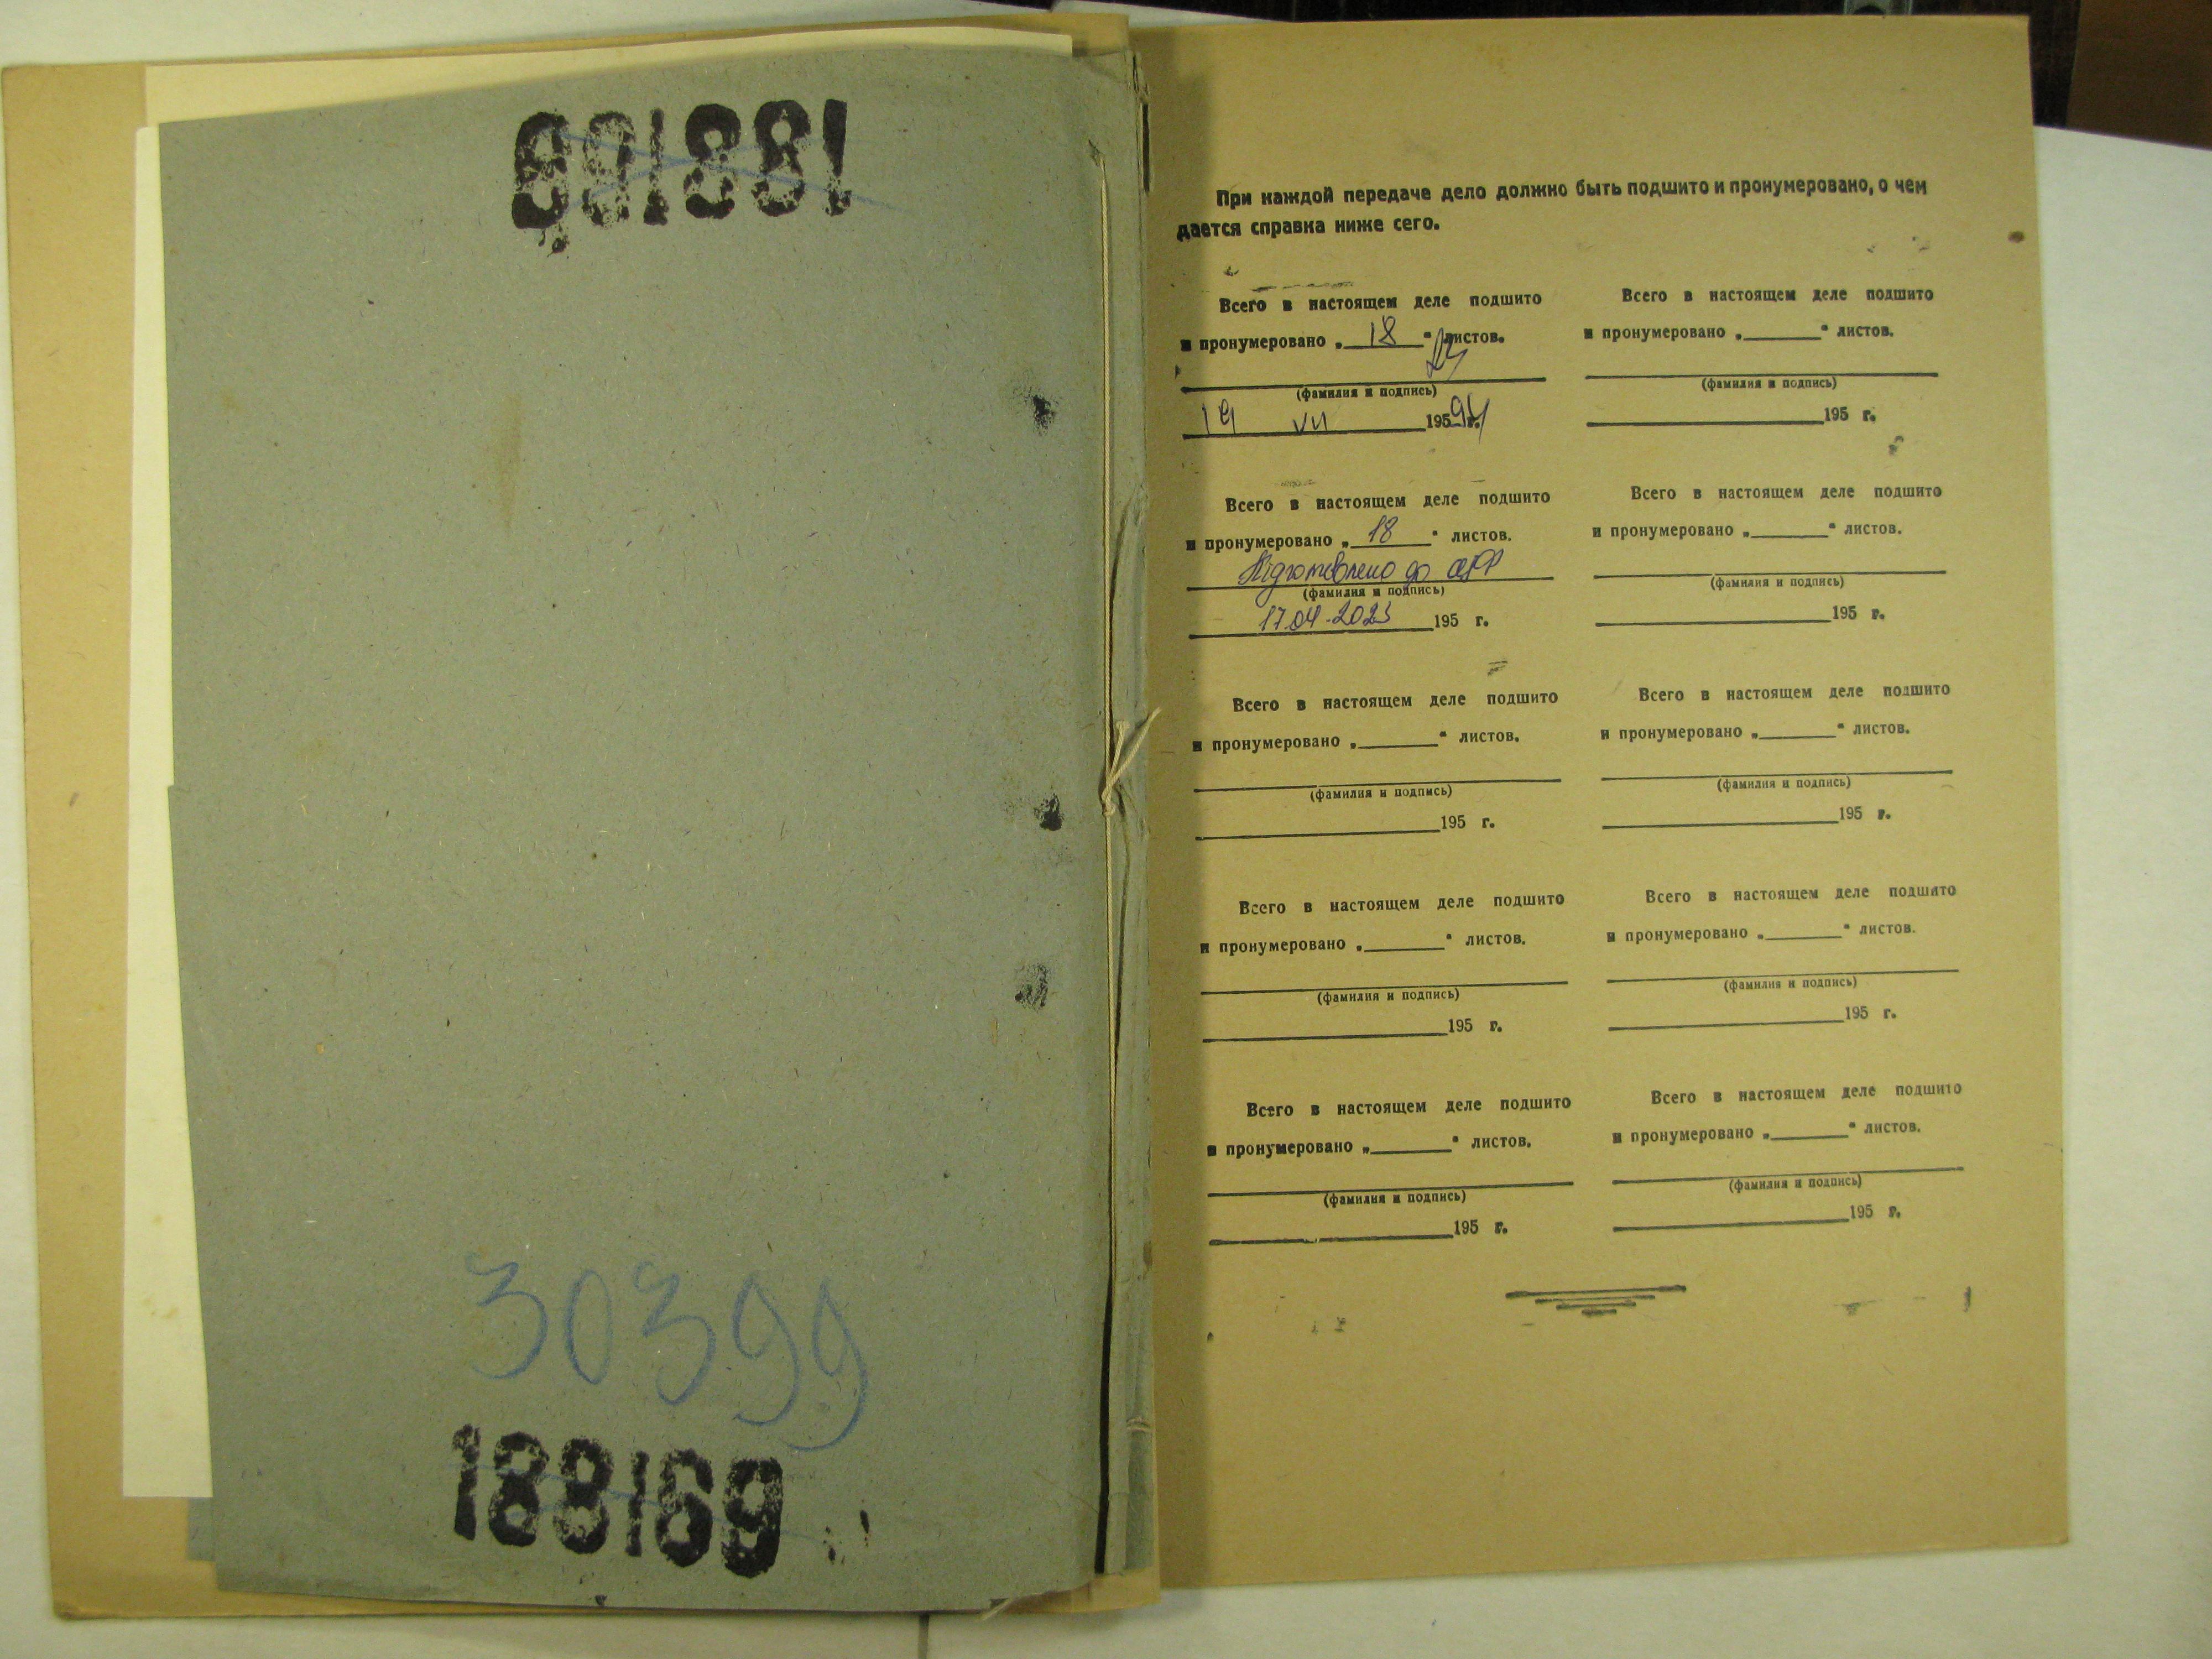 188169
30399
188169
При каждой передаче дело должно быть подшито и пронумеровано, о чем
дается справка ниже сего.
Всего в настоящем деле подшито
и пронумеровано „ 18 “ листов.
(фамилия и подпись)
19 VII 195 г.
Всего в настоящем деле подшито
и пронумеровано „ 18 “ листов.
Підготовлено до
(фамилия и подпись)
17.04.2023 195 г.
Всего в настоящем деле подшито
и пронумеровано „ “ листов.
(фамилия и подпись)
195 г.
Всего в настоящем деле подшито
и пронумеровано „ “ листов.
(фамилия и подпись)
195 г.
Всего в настоящем деле подшито
и пронумеровано „ “ листов.
(фамилия и подпись)
195 г.
Всего в настоящем деле подшито
и пронумеровано „ “ листов.
(фамилия и подпись)
195 г.
Всего в настоящем деле подшито
и пронумеровано „ “ листов.
(фамилия и подпись)
195 г.
Всего в настоящем деле подшито
и пронумеровано „ “ листов.
(фамилия и подпись)
195 г.
Всего в настоящем деле подшито
и пронумеровано „ “ листов.
(фамилия и подпись)
195 г.
Всего в настоящем деле подшито
и пронумеровано „ “ листов.
(фамилия и подпись)
195 г.